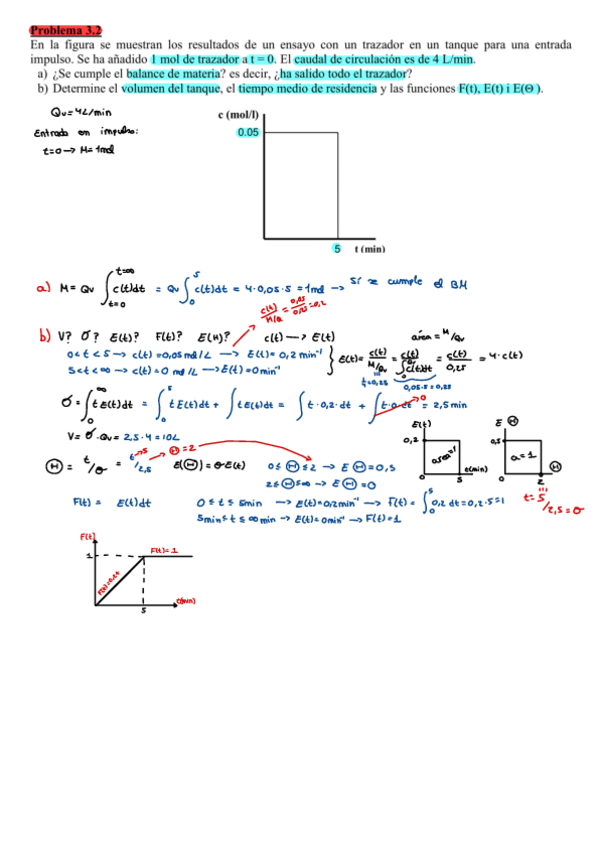 Problema 3.2
En la figura se muestran los resultados de un ensayo con un trazador en un tanque para una entrada
impulso. Se ha añadido 1 mol de trazador a t = 0. El caudal de circulación es de 4 L/min.
a) ¿Se cumple el balance de materia? es decir, ¿ha salido todo el trazador?
b) Determine el volumen del tanque, el tiempo medio de residencia y las funciones F(t), E(t) i E(Θ ).
Qv=4L/min
Entrada en impulso:
t=0→ M= 1mol
c (mol/l)
0.05
5 t (min)
a) M= Qv ∫ t=0 t=∞ c(t)dt = Qv ∫ 0 5 c(t)dt = 4·0,05·5 = 1mol → sí se cumple el BM
c(t)/M/Q = 0,05/0,25 = 0,2
b) V? σ? E(t)? F(t)? E(H)? c(t) → E(t) área = M/Qv
0<t<5 → c(t)=0,05mol/L → E(t)= 0,2 min⁻¹
5<t<∞ → c(t)=0 mol/L → E(t)=0min⁻¹
E(t)= c(t)/M/Qv = c(t)/∫c(t)dt = c(t)/0,25 = 4·c(t)
0,05·5=0,25
σ = ∫ 0 ∞ t E(t)dt = ∫ 0 5 t E(t)dt + ∫ t E(t)dt = ∫ t·0,2·dt + ∫ t·0·dt = 2,5min
V= σ·Qv = 2,5·4 = 10L
Θ = t/σ = t→5/2,5 → Θ=2 E(Θ) = σ·E(t) 0≤Θ≤2 → EΘ=0,5
2≤Θ≤∞ → EΘ=0
E(t)
0,2
área=1
0 5 t(min)
E Θ
0,5
a=1
0 2 Θ
t=5/2,5=σ
F(t) = E(t)dt 0≤t≤5min → E(t)=0,2min⁻¹ → F(t)= ∫ 0 5 0,2 dt = 0,2·5=1
5min≤t≤∞min → E(t)=0min⁻¹ → F(t)=1
F(t)
1
F(t)=1
F(t)=0,2·t
5 t(min)